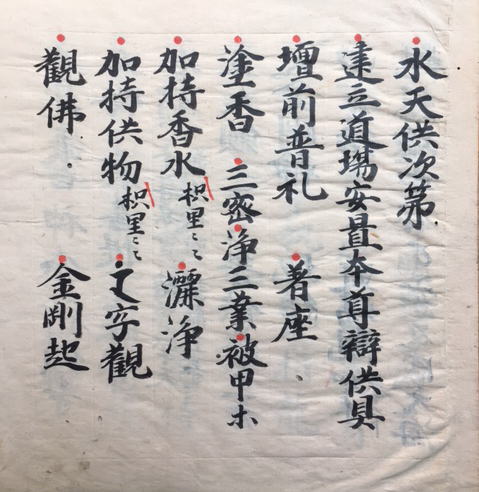 水天供次第
建立道場安置本尊辯供具
壇前普礼 着座
塗香 三密 浄三業 被甲ホ
加持香水 枳里〻〻 灑浄
加持供物 枳里〻〻 字觀
觀佛 金剛起